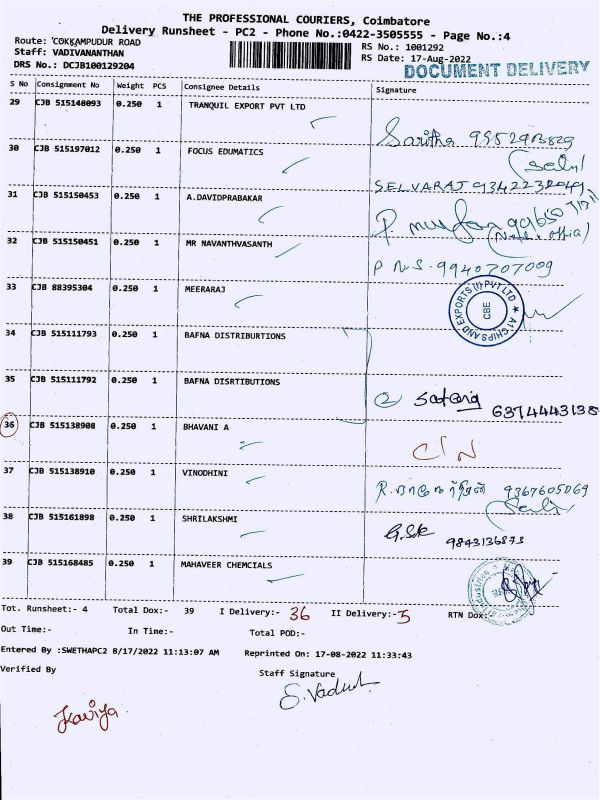 THE PROFESSIONAL COURIERS, Coimbatore
Delivery Runsheet - PC2 - Phone No.:0422-3505555 - Page No.:4
Route: COKKAMPUDUR ROAD
RS No.: 1001292
Staff: VADIVANANTHAN
RS Date: 17-Aug-2022
DRS No.: DCJB100129204
DOCUMENT DELIVERY
S No Consignment No Weight PCS Consignee Details Signature
29 CJB 515148093 0.250 1 TRANQUIL EXPORT PVT LTD
Saritha
30 CJB 515197012 0.250 1 FOCUS EDUMATICS
SELVARAJ 9342232049
31 CJB 515150453 0.250 1 A.DAVIDPRABAKAR
32 CJB 515150451 0.250 1 MR NAVANTHVASANTH
P N.S. 9940707009
33 CJB 88395304 0.250 1 MEERARAJ
A1 CHIPS AND EXPORTS (I) PVT LTD
CBE
34 CJB 515111793 0.250 1 BAFNA DISTRIBURTIONS
35 CJB 515111792 0.250 1 BAFNA DISRTIBUTIONS
6374443138
36 CJB 515138908 0.250 1 BHAVANI A
C/N
37 CJB 515138910 0.250 1 VINODHINI
9367605069
38 CJB 515161898 0.250 1 SHRILAKSHMI
9843136873
39 CJB 515168485 0.250 1 MAHAVEER CHEMCIALS
Tot. Runsheet:- 4 Total Dox:- 39 I Delivery:- 36 II Delivery:- 3 RTN Dox:
Out Time:- In Time:- Total POD:-
Entered By :SWETHAPC2 8/17/2022 11:13:07 AM Reprinted On: 17-08-2022 11:33:43
Verified By Staff Signature
Kaviya